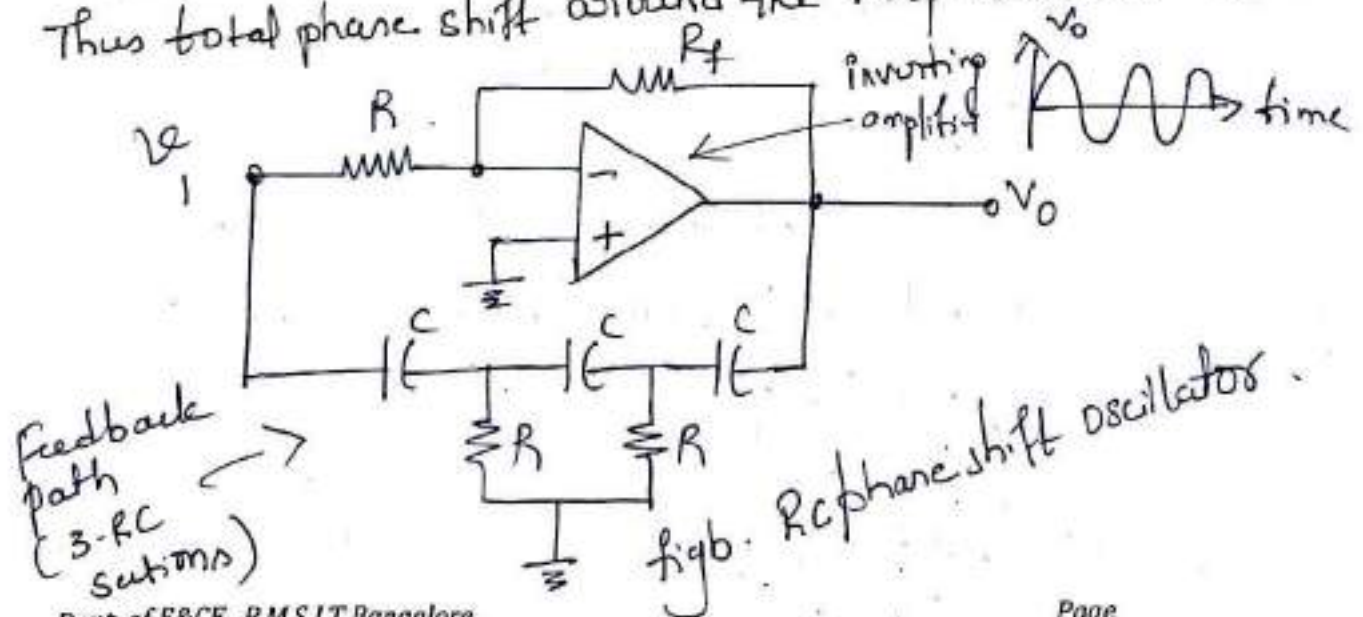 Thus total phase shift around the
Rf
inverting
amplifier
V0
time
R
V
1
-
+
V0
C
C
C
R
R
Feedback
path
(3-RC
sections)
figb. RC phase shift oscillator.
Dept of E&CE, B.M.S.I.T Bangalore
Page